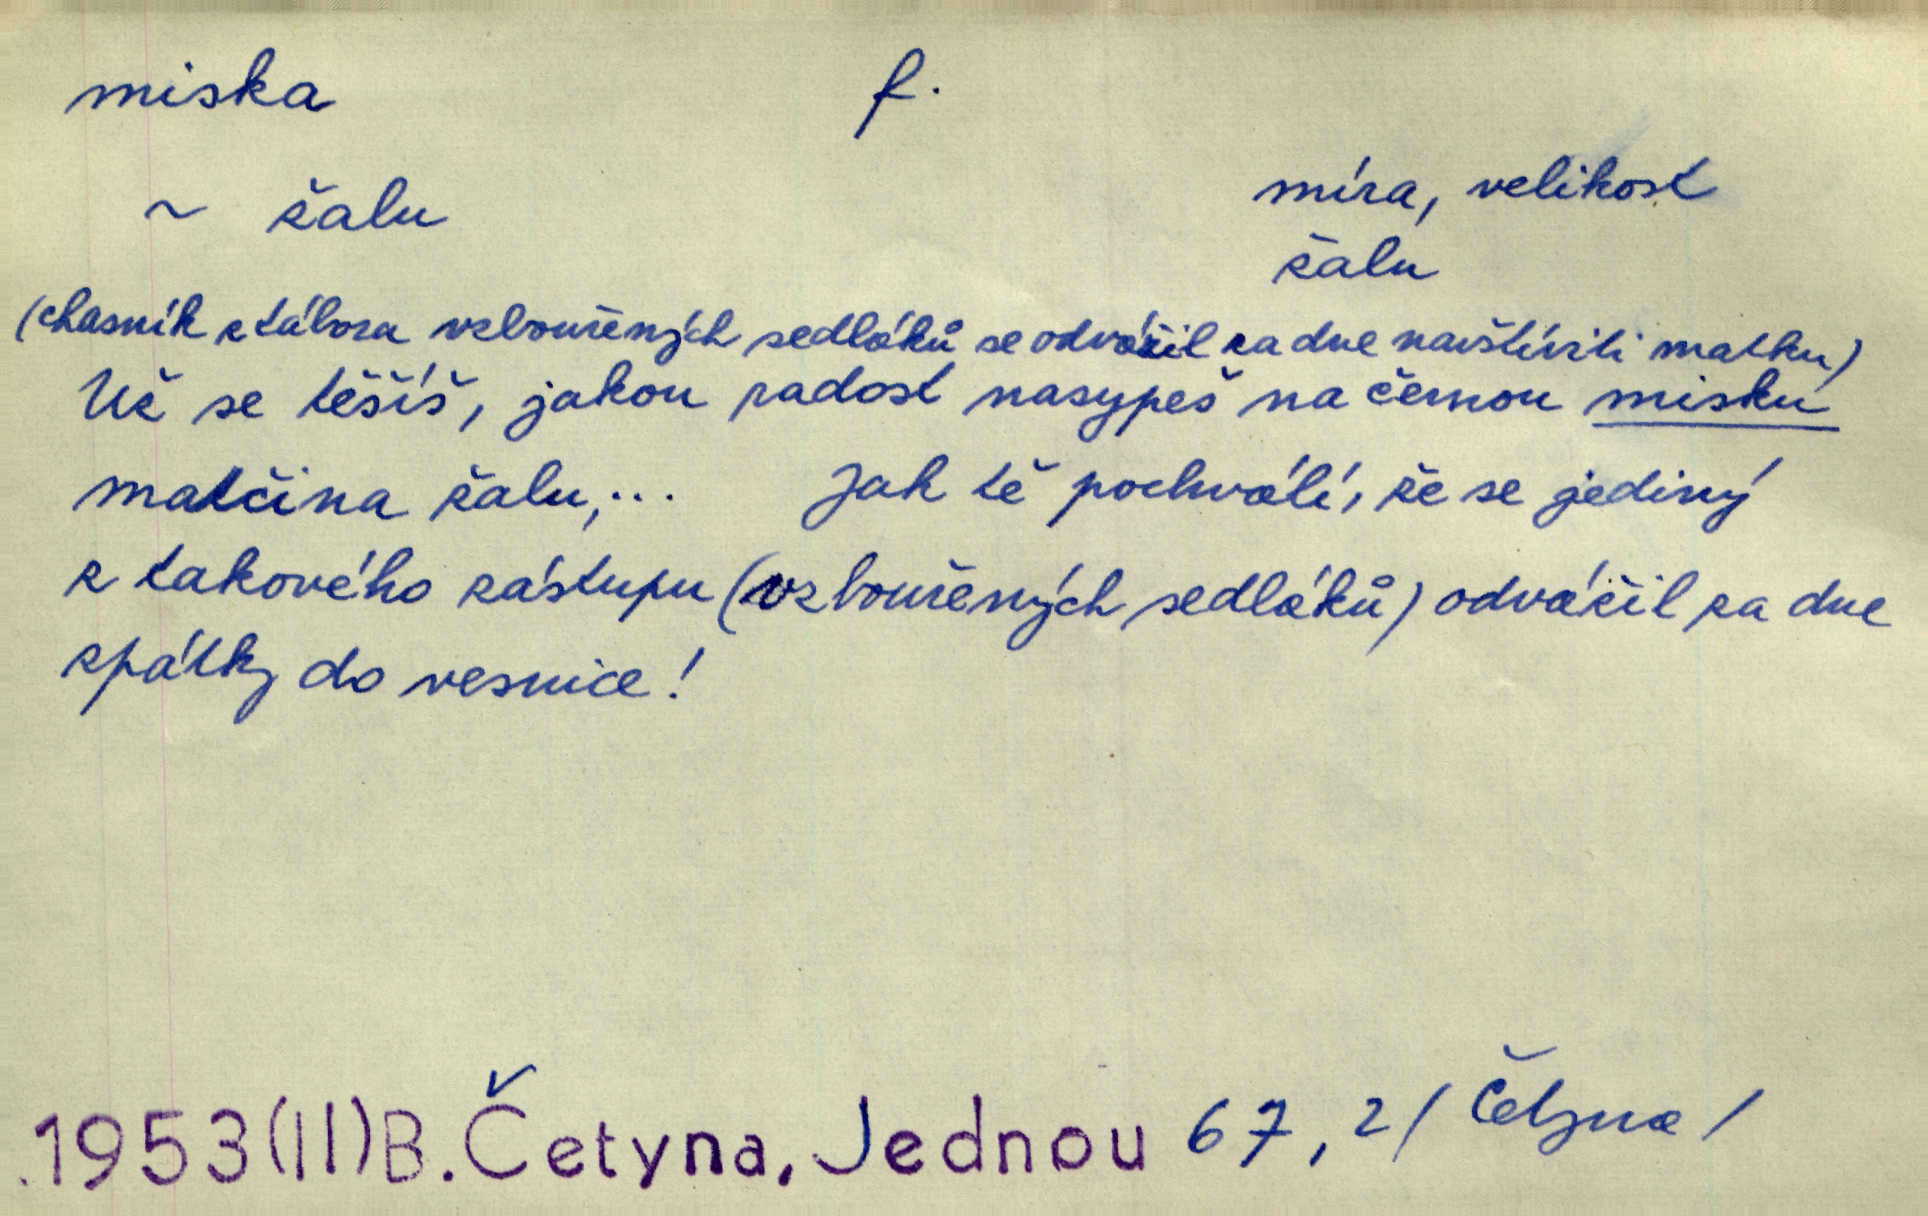 miska f.
~ žalu míra, velikost
žalu
(chasník z tábora vzbouřených sedláků se odvážil za dne navštíviti matku)
Už se těšíš, jakou radost nasypeš na černou misku
matčina žalu,... Jak tě pochválí, že se jediný
z takového zástupu (vzbouřených sedláků) odvážil za dne
zpátky do vesnice!
1953(II)B. Četyna, Jednou 67, 2 / Četyna /